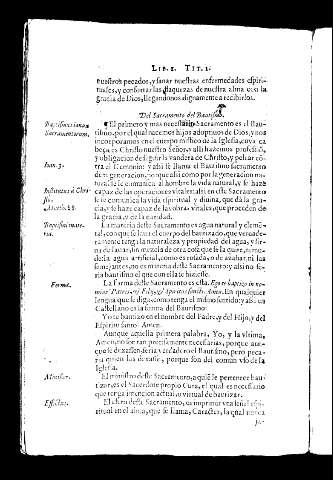 LIB. I. TIT. I.
nuestros pecados, y sanar nuestras enfermedades espiri-
tuales, y confortar las flaquezas de nuestra alma con la
gracia de Dios, llegandonos dignamente a recibirlos.
Del Sacramento del Bautismo.
El primero y mas necessario Sacramento es el Bau-
tismo, por el qual nacemos hijos adoptiuos de Dios, y nos
incorporamos en el cuerpo mistico de la Iglesia, cuya ca
beça es Christo nuestro Señor, y alli hazemos profesiō,
y obligacion de seguir la vandera de Christo, y pelear cō-
tra el Demonio y assi se llama el Bautismo Sacramento
de regeneracion, porque assi como por la generacion na-
tural se le comunica al hombre la vida natural, y se haze
capaz de las operaciones vitales: assi en este Sacramento
se le comunica la vida espiritual y diuina, que da la gra-
cia, y se haze capaz de las obras vitales, que proceden de
la gracia, y de la caridad.
Ioan. 3.
Matth. 28.
La materia deste Sacramento es agua natural y elemē-
tal, con que se laue el cuerpo del bautizado, que verdade-
ramente tenga la naturaleza y propiedad del agua, y sir-
ua de lauar, sin mezcla de otra cosa que se la quite, porque
de la agua artificial, como es rosada, o de azahar, ni las
semejantes, no es materia deste Sacramento: y assi no se-
ria bautismo el que con ella se hiziesse.
Forma.
La Forma deste Sacramento es esta. Ego te baptizo in no-
mine Patris, & Filij, & Spiritus sancti. Amen. En qualquier
lengua que se diga, como tenga el mismo sentido: y assi en
Castellano es la forma del Bautismo:
Yo te bautizo en el nombre del Padre, y del Hijo, y del
Espiritu santo. Amen.
Aunque aquella primera palabra, Yo, y la vltima,
Amen, no son tan precissamente necessarias, porque aun-
que se dexassen, seria verdadero el Bautismo, pero peca-
ria quien las dexasse, porque son del comun vso de la
Iglesia.
Minister.
El ministro deste Sacramento, a quiē le pertenece bau-
tizar, es el Sacerdote propio Cura, el qual es necessario
que tenga intencion actual, o virtual de bautizar.
Effectus.
El efeto deste Sacramento, es imprimir vna señal espi-
ritual en el alma, que se llama, Caracter, la qual nunca